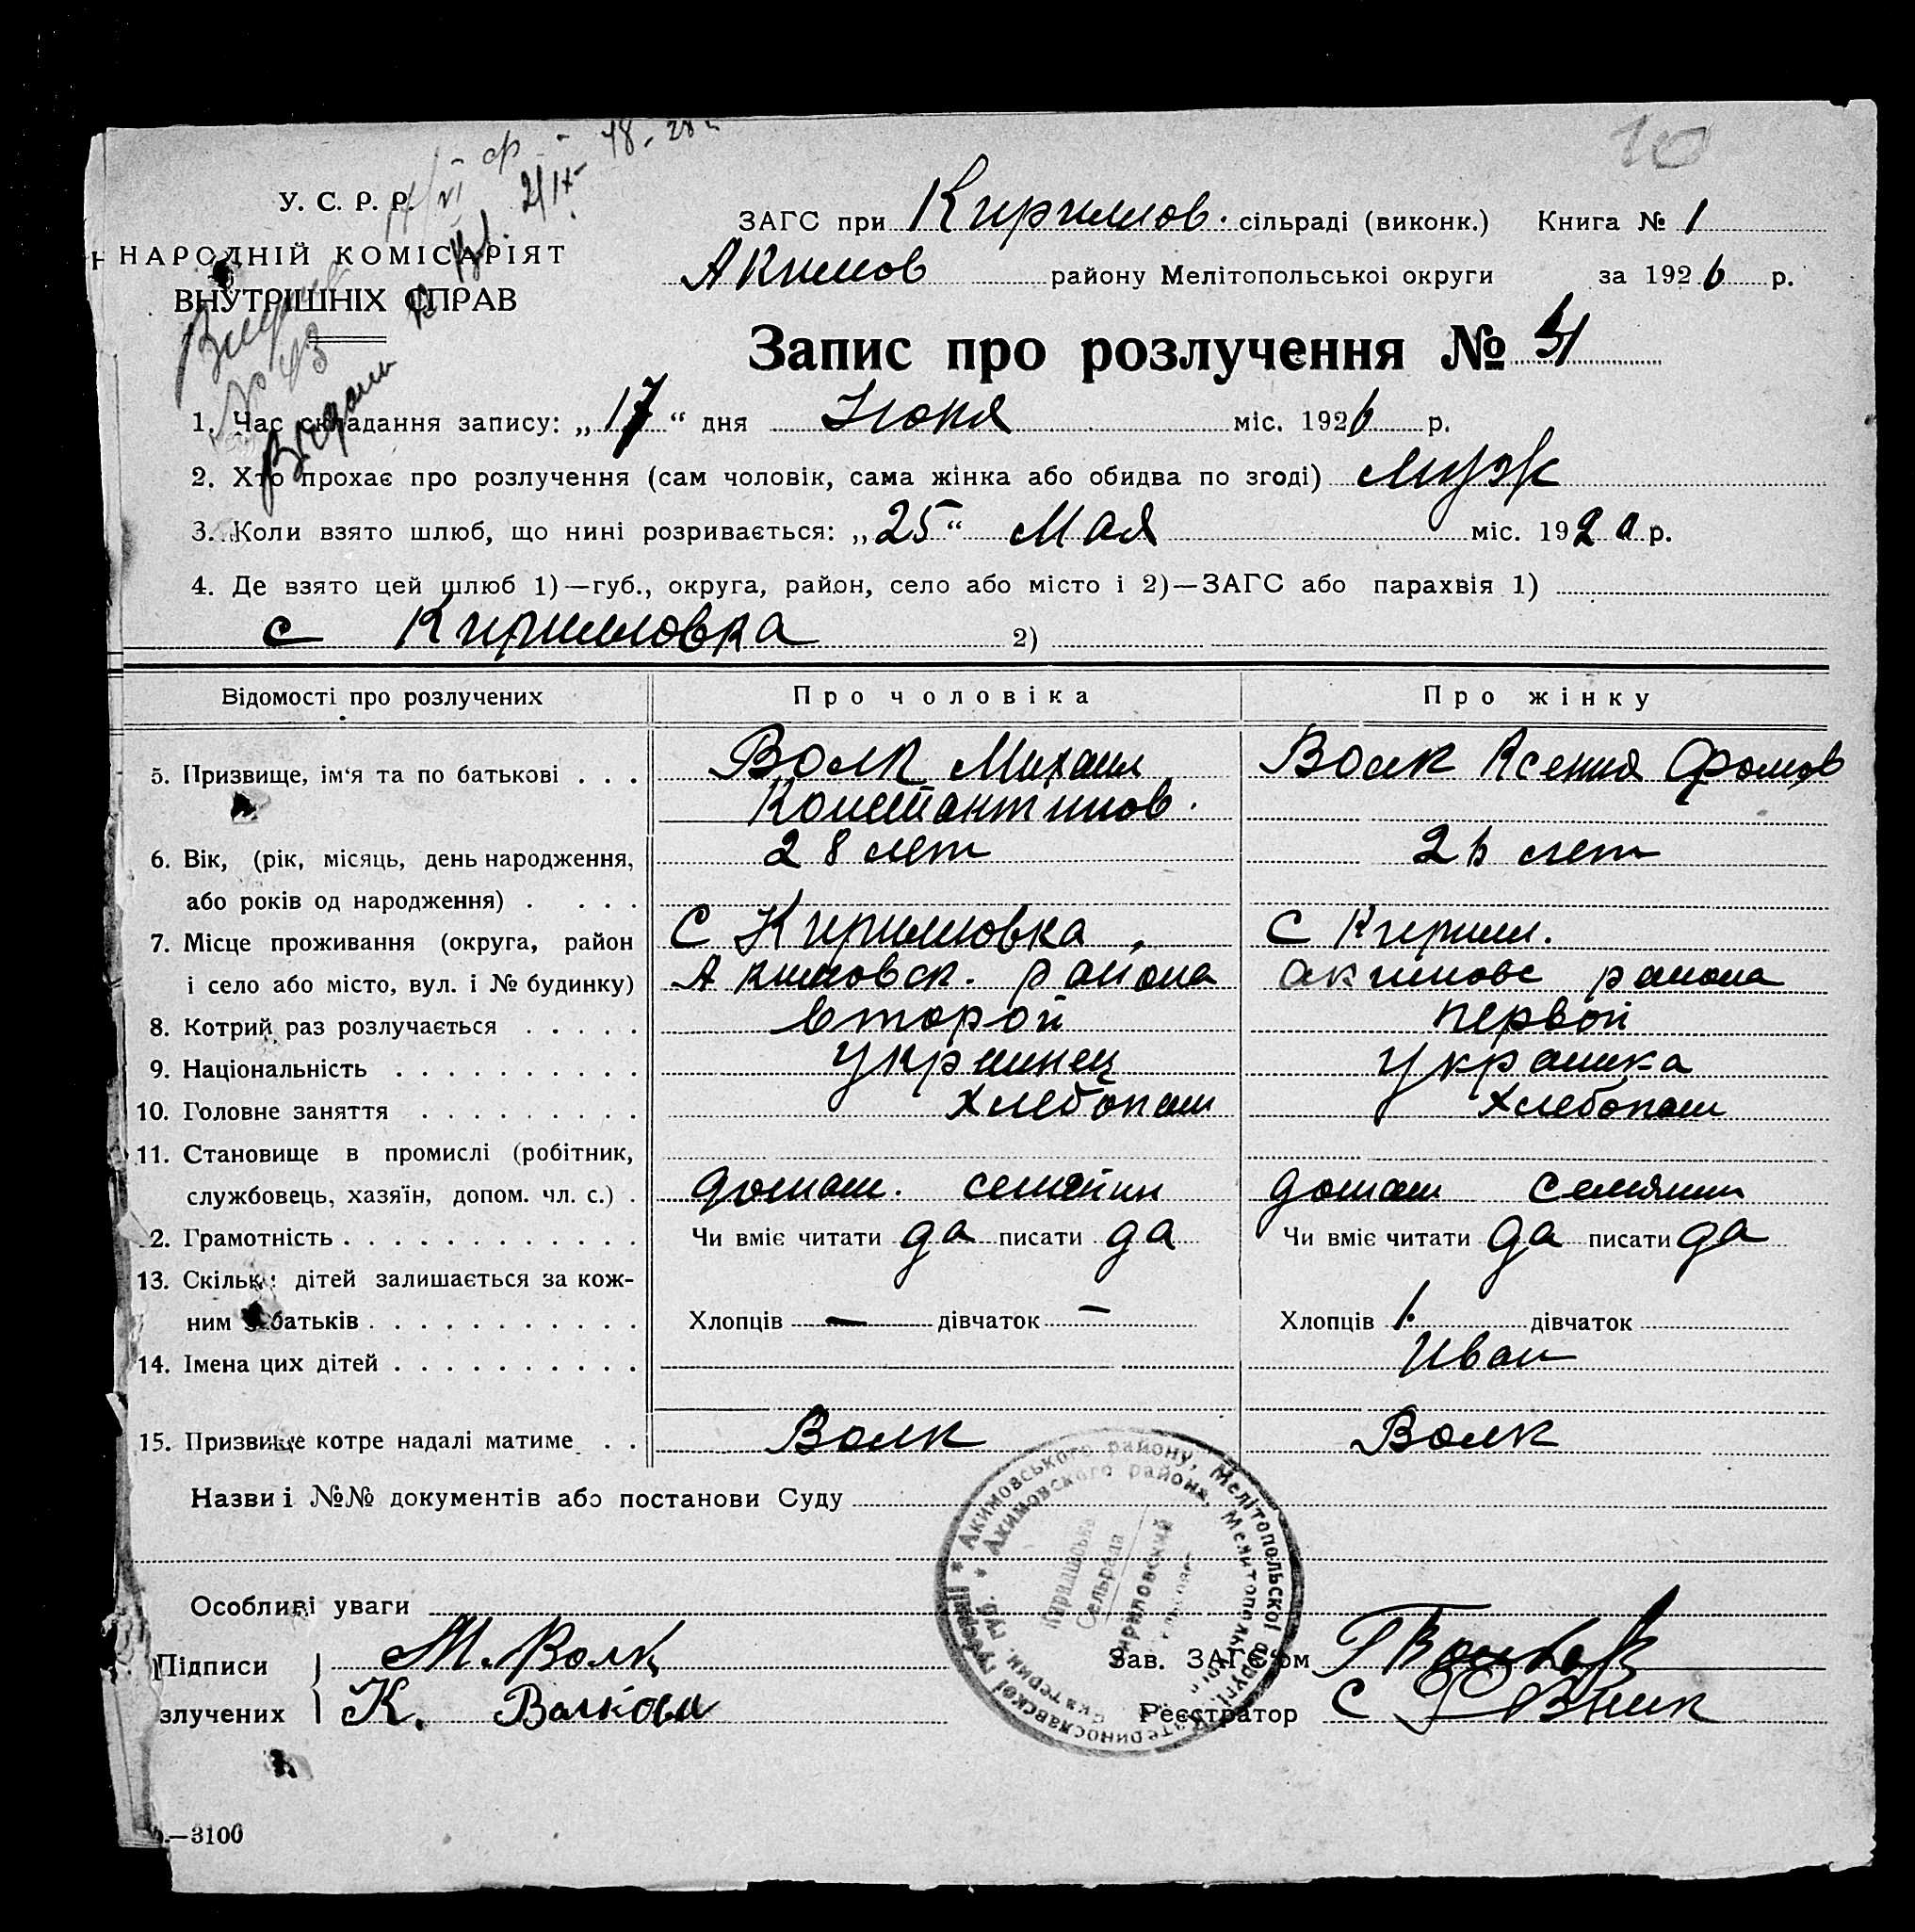 10
У. С. Р. Р.
НАРОДНІЙ КОМІСАРІЯТ
ВНУТРІШНІХ СПРАВ
ЗАГС при Кирилов. сільраді (виконк.) Книга № 1
Акимов району Мелітопольської округи за 1926 р.
Запис про розлучення №
1. Час складання запису: „17“ дня Июня міс. 1926 р.
2. Хто прохає про розлучення (сам чоловік, сама жінка або обидва по згоді) муж
3. Коли взято шлюб, що нині розривається: „25“ Мая міс. 1920 р.
4. Де взято цей шлюб 1)—губ., округа, район, село або місто і 2)—ЗАГС або парахвія 1)
с Кирилловка 2)
Відомості про розлучених Про чоловіка Про жінку
5. Призвище, ім'я та по батькові . . . Волк Михаил Волк Ксения Фомов
Константинов.
6. Вік, (рік, місяць, день народження, 28 лет 26 лет
або років од народження) . . . .
7. Місце проживання (округа, район С Кирилловка, С Кирилл.
і село або місто, вул. і № будинку) Акимовск. района Акимовс района
8. Котрий раз розлучається . . . . . второй первой
9. Національність . . . . . . . . . . Украинец Украинка
10. Головне заняття . . . . . . . . . Хлебопаш Хлебопаш
11. Становище в промислі (робітник,
службовець, хазяїн, допом. чл. с.) . домаш.  домаш
2. Грамотність . . . . . . . . . . . . Чи вміє читати да писати да Чи вміє читати да писати да
13. Скільк: дітей залишається за кож-
ним з батьків . . . . . . . . . . . Хлопців — дівчаток — Хлопців 1. дівчаток
14. Імена цих дітей . . . . . . . . . . Иван
15. Призвище котре надалі матиме . . Волк Волк
Назви і №№ документів або постанови Суду
Особливі уваги
Підписи М. Волк Зав. ЗАГС'ом
злучених К. Волкова Реєстратор С
* Акимовського району, Мелітопольскої округи, Катеринославської губернії
* Акимовского района, Мелитопольск. окр. Екатерин. губ.
Сельрада
—3100